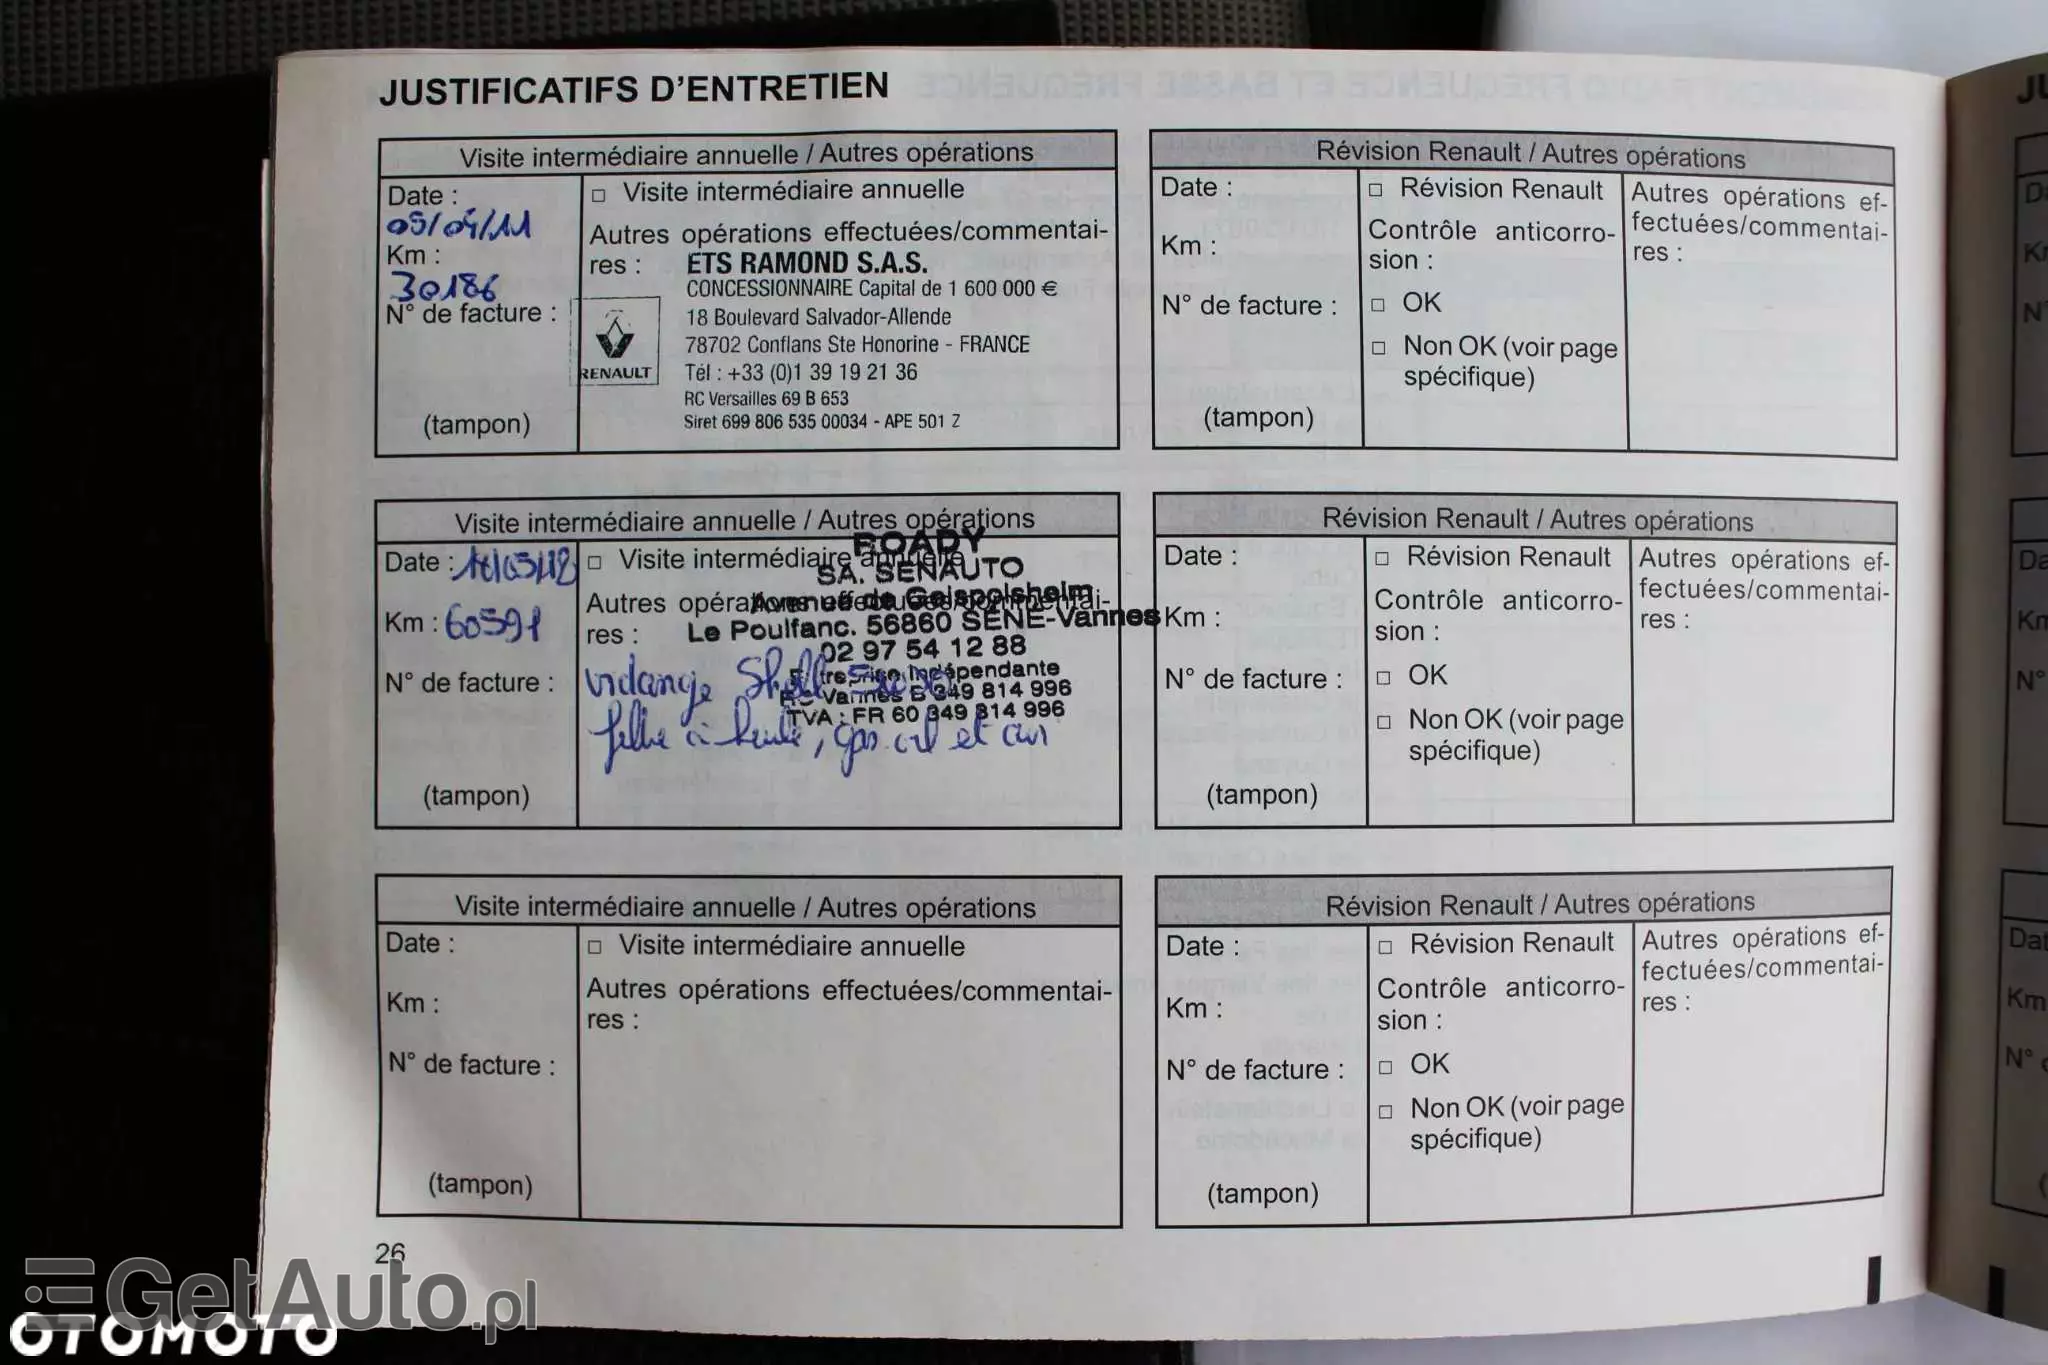 JUSTIFICATIFS D'ENTRETIEN
Visite intermédiaire annuelle / Autres opérations
Date :
05/04/11
Km :
30186
N° de facture :
(tampon)
□ Visite intermédiaire annuelle
Autres opérations effectuées/commentai-
res :
ETS RAMOND S.A.S.
CONCESSIONNAIRE Capital de 1 600 000 €
18 Boulevard Salvador-Allende
78702 Conflans Ste Honorine - FRANCE
Tél : +33 (0)1 39 19 21 36
RC Versailles 69 B 653
Siret 699 806 535 00034 - APE 501 Z
RENAULT
Révision Renault / Autres opérations
Date :
Km :
N° de facture :
(tampon)
□ Révision Renault
Contrôle anticorro-
sion :
□ OK
□ Non OK (voir page
spécifique)
Autres opérations ef-
fectuées/commentai-
res :
Visite intermédiaire annuelle / Autres opérations
Date :
Km : 60591
N° de facture :
(tampon)
□ Visite intermédiaire annuelle
Autres opérations effectuées/commentai-
res :
ROADY
SA. SENAUTO
Avenue de Geispolsheim
Le Poulfanc. 56860 SENE-Vannes
02 97 54 12 88
Entreprise Indépendante
RC Vannes B 349 814 996
TVA : FR 60 349 814 996
vidange Shell
filtre à huile, gas oil et air
Révision Renault / Autres opérations
Date :
Km :
N° de facture :
(tampon)
□ Révision Renault
Contrôle anticorro-
sion :
□ OK
□ Non OK (voir page
spécifique)
Autres opérations ef-
fectuées/commentai-
res :
Visite intermédiaire annuelle / Autres opérations
Date :
Km :
N° de facture :
(tampon)
□ Visite intermédiaire annuelle
Autres opérations effectuées/commentai-
res :
Révision Renault / Autres opérations
Date :
Km :
N° de facture :
(tampon)
□ Révision Renault
Contrôle anticorro-
sion :
□ OK
□ Non OK (voir page
spécifique)
Autres opérations ef-
fectuées/commentai-
res :
26
GetAuto.pl
OTOMOTO